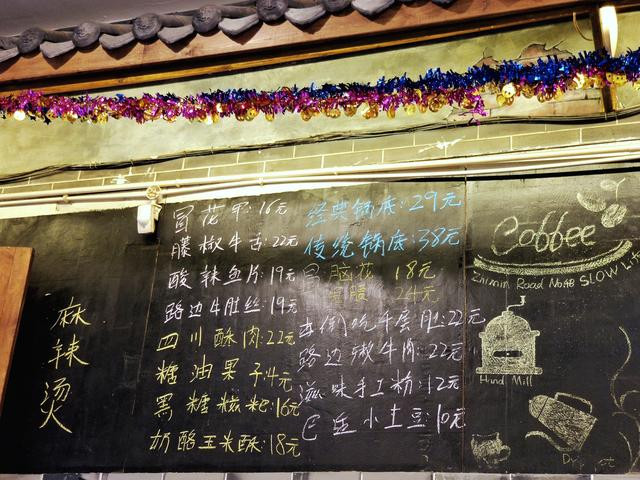 麻辣烫
冒花甲:16元
藤椒牛舌:22元
酸辣鱼片:19元
路边牛肚丝:19元
四川酥肉:22元
糖油果子:4元
黑糖糍粑:16元
奶酪玉米酥:18元
经典锅底:29元
传统锅底:38元
冒脑花 18元
24元
千层肚:22元
路边嫩牛肉:22元
滋味手工粉:12元
小土豆:10元
Coffee
Road No48 SLOW
Hand Mill